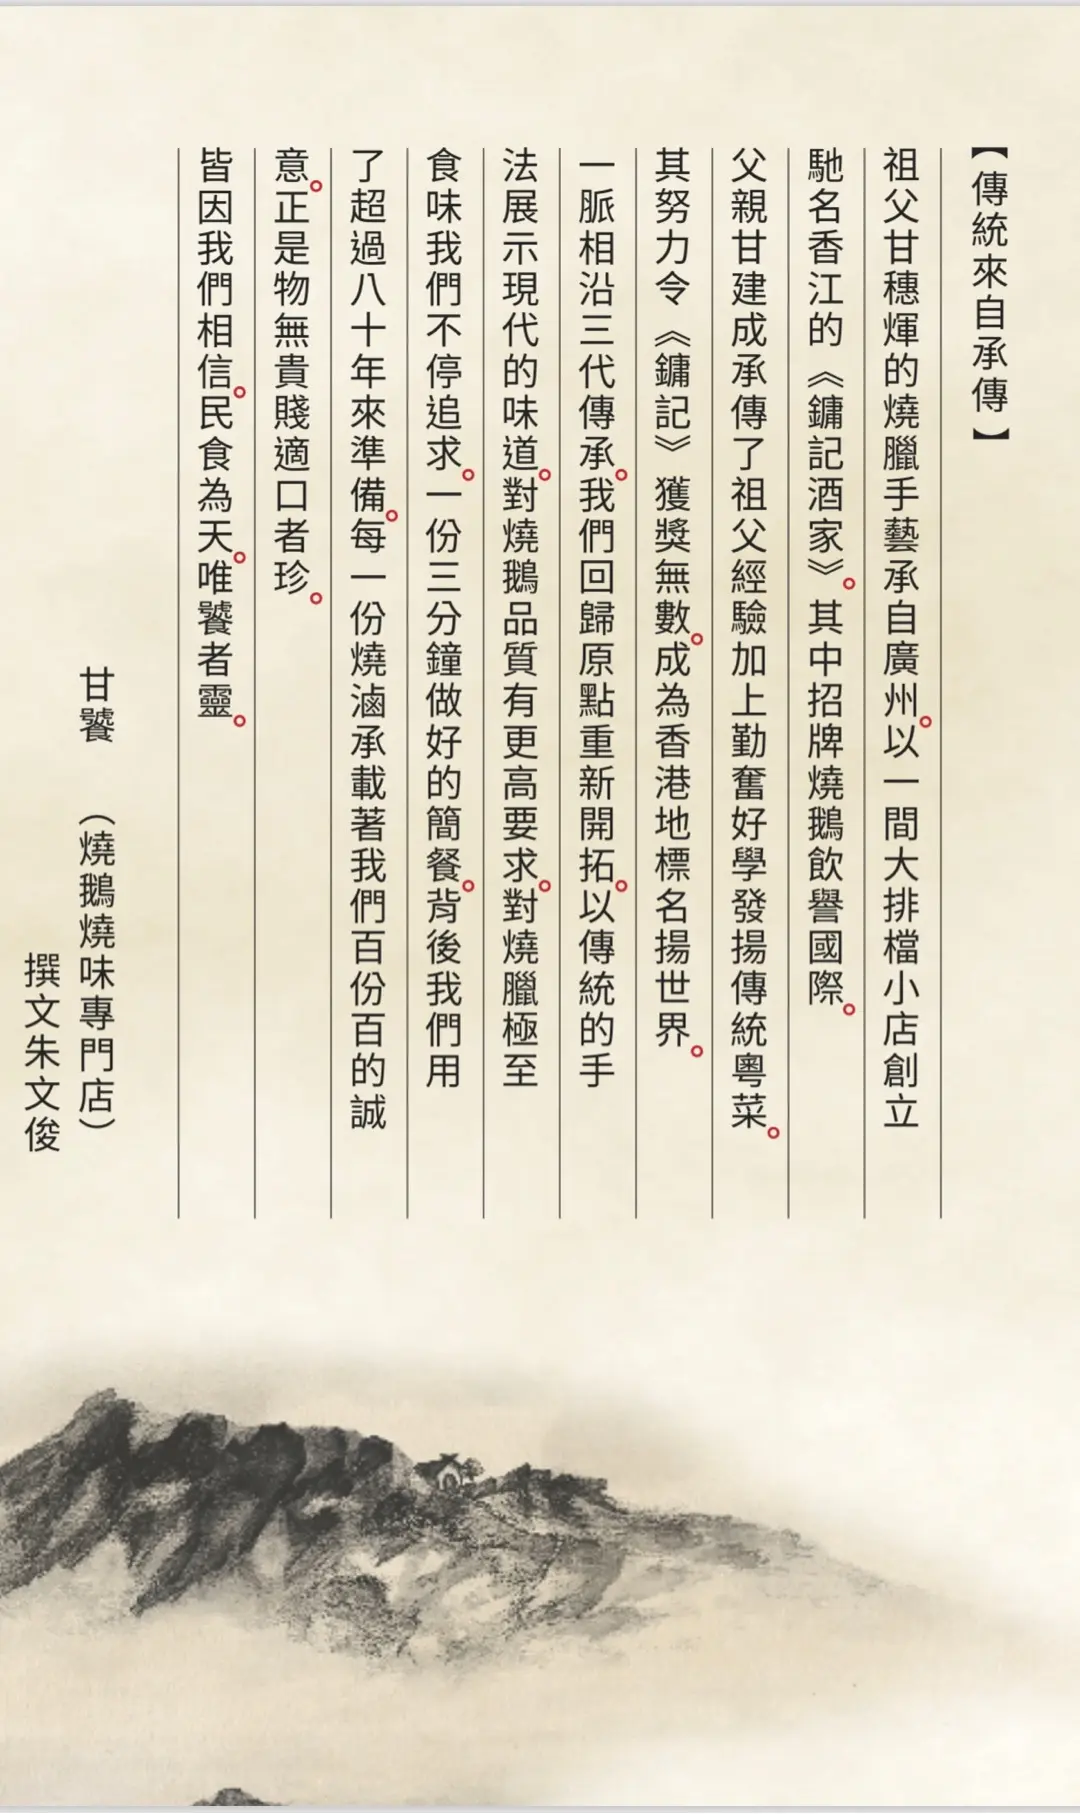 【傳統來自承傳】
祖父甘穗煇的燒臘手藝承自廣州。以一間大排檔小店創立
馳名香江的《鏞記酒家》。其中招牌燒鵝飲譽國際。
父親甘建成承傳了祖父經驗加上勤奮好學發揚傳統粵菜。
其努力令《鏞記》獲獎無數。成為香港地標名揚世界。
一脈相沿三代傳承。我們回歸原點重新開拓。以傳統的手
法展示現代的味道。對燒鵝品質有更高要求。對燒臘極至
食味我們不停追求。一份三分鐘做好的簡餐。背後我們用
了超過八十年來準備。每一份燒滷承載著我們百份百的誠
意。正是物無貴賤適口者珍。
皆因我們相信。民食為天。唯饕者靈。
甘饕 （燒鵝燒味專門店）
撰文朱文俊